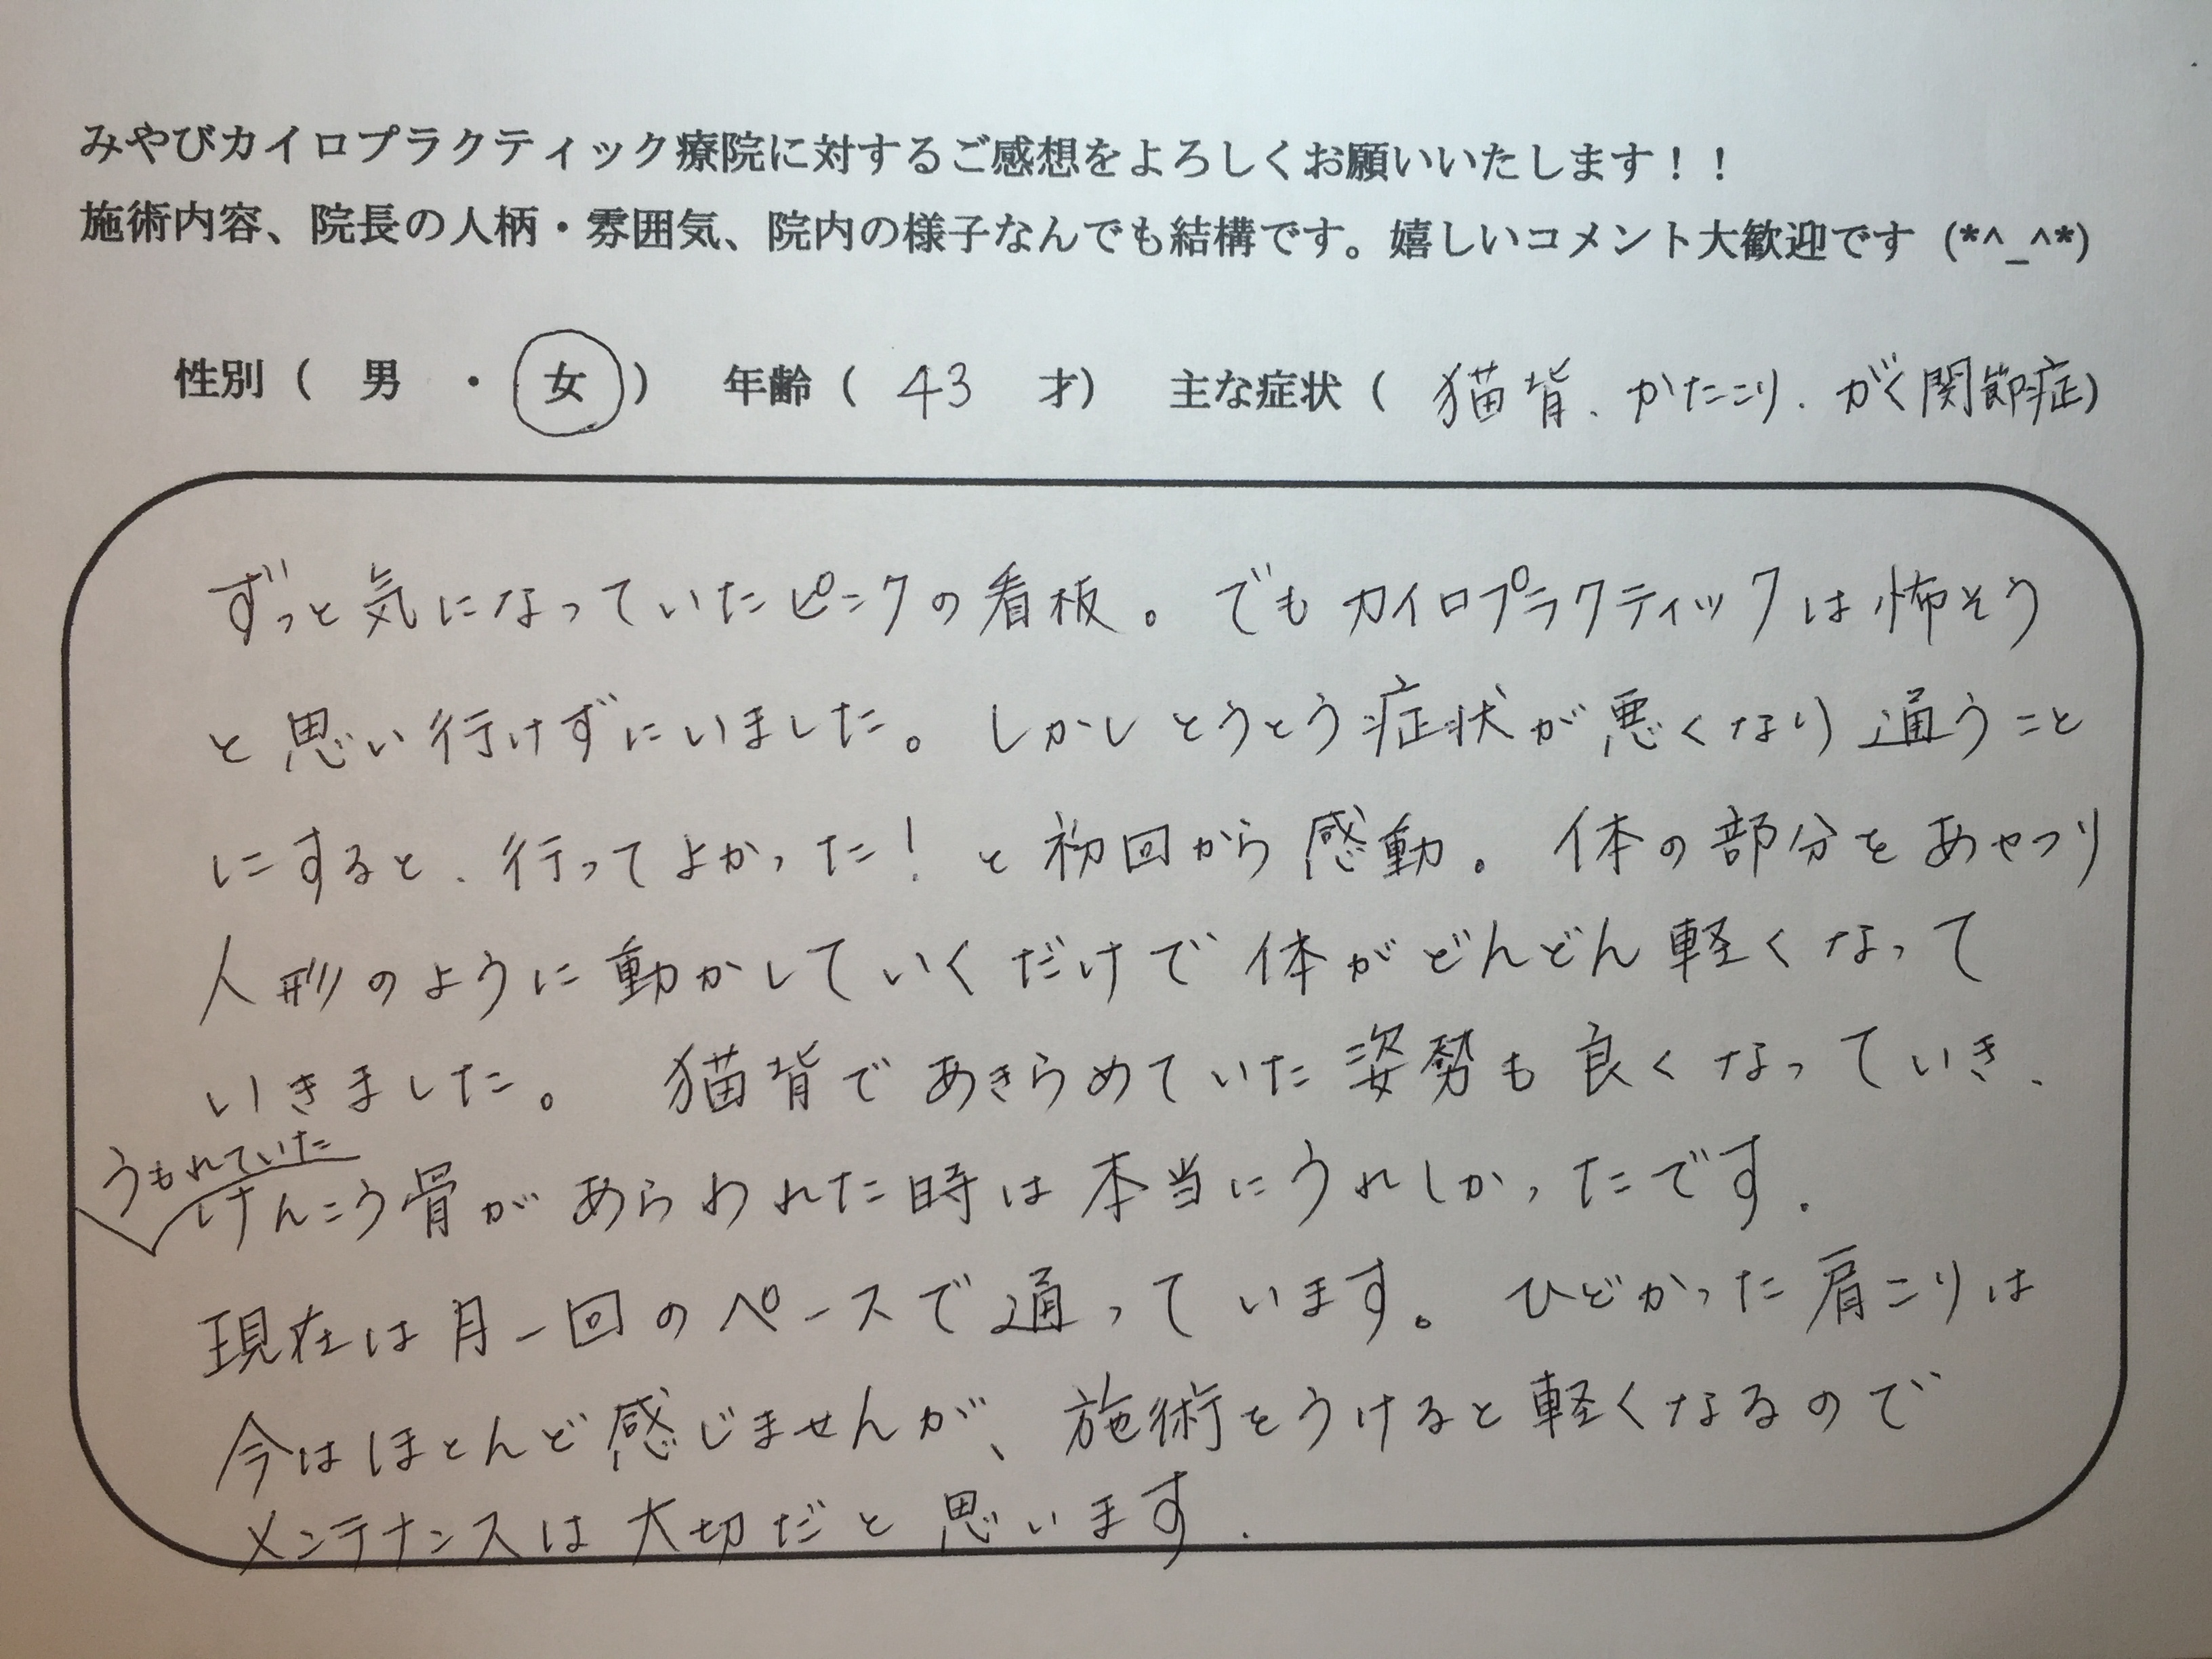 みやびカイロプラクティック療院に対するご感想をよろしくお願いいたします！！
施術内容、院長の人柄・雰囲気、院内の様子なんでも結構です。嬉しいコメント大歓迎です (*^_^*)
性別（ 男 ・ 女 ） 年齢（ 43 才） 主な症状（ 猫背、かたこり、がく関節症）
ずっと気になっていたピンクの看板。でもカイロプラクティックは怖そう
と思い行けずにいました。しかしとうとう症状が悪くなり通うこと
にすると、行ってよかった！と初回から感動。体の部分をあやつり
人形のように動かしていくだけで体がどんどん軽くなって
いきました。 猫背であきらめていた姿勢も良くなっていき、
うもれていた
けんこう骨があらわれた時は本当にうれしかったです。
現在は月一回のペースで通っています。ひどかった肩こりは
今はほとんど感じませんが、施術をうけると軽くなるので
メンテナンスは大切だと思います。